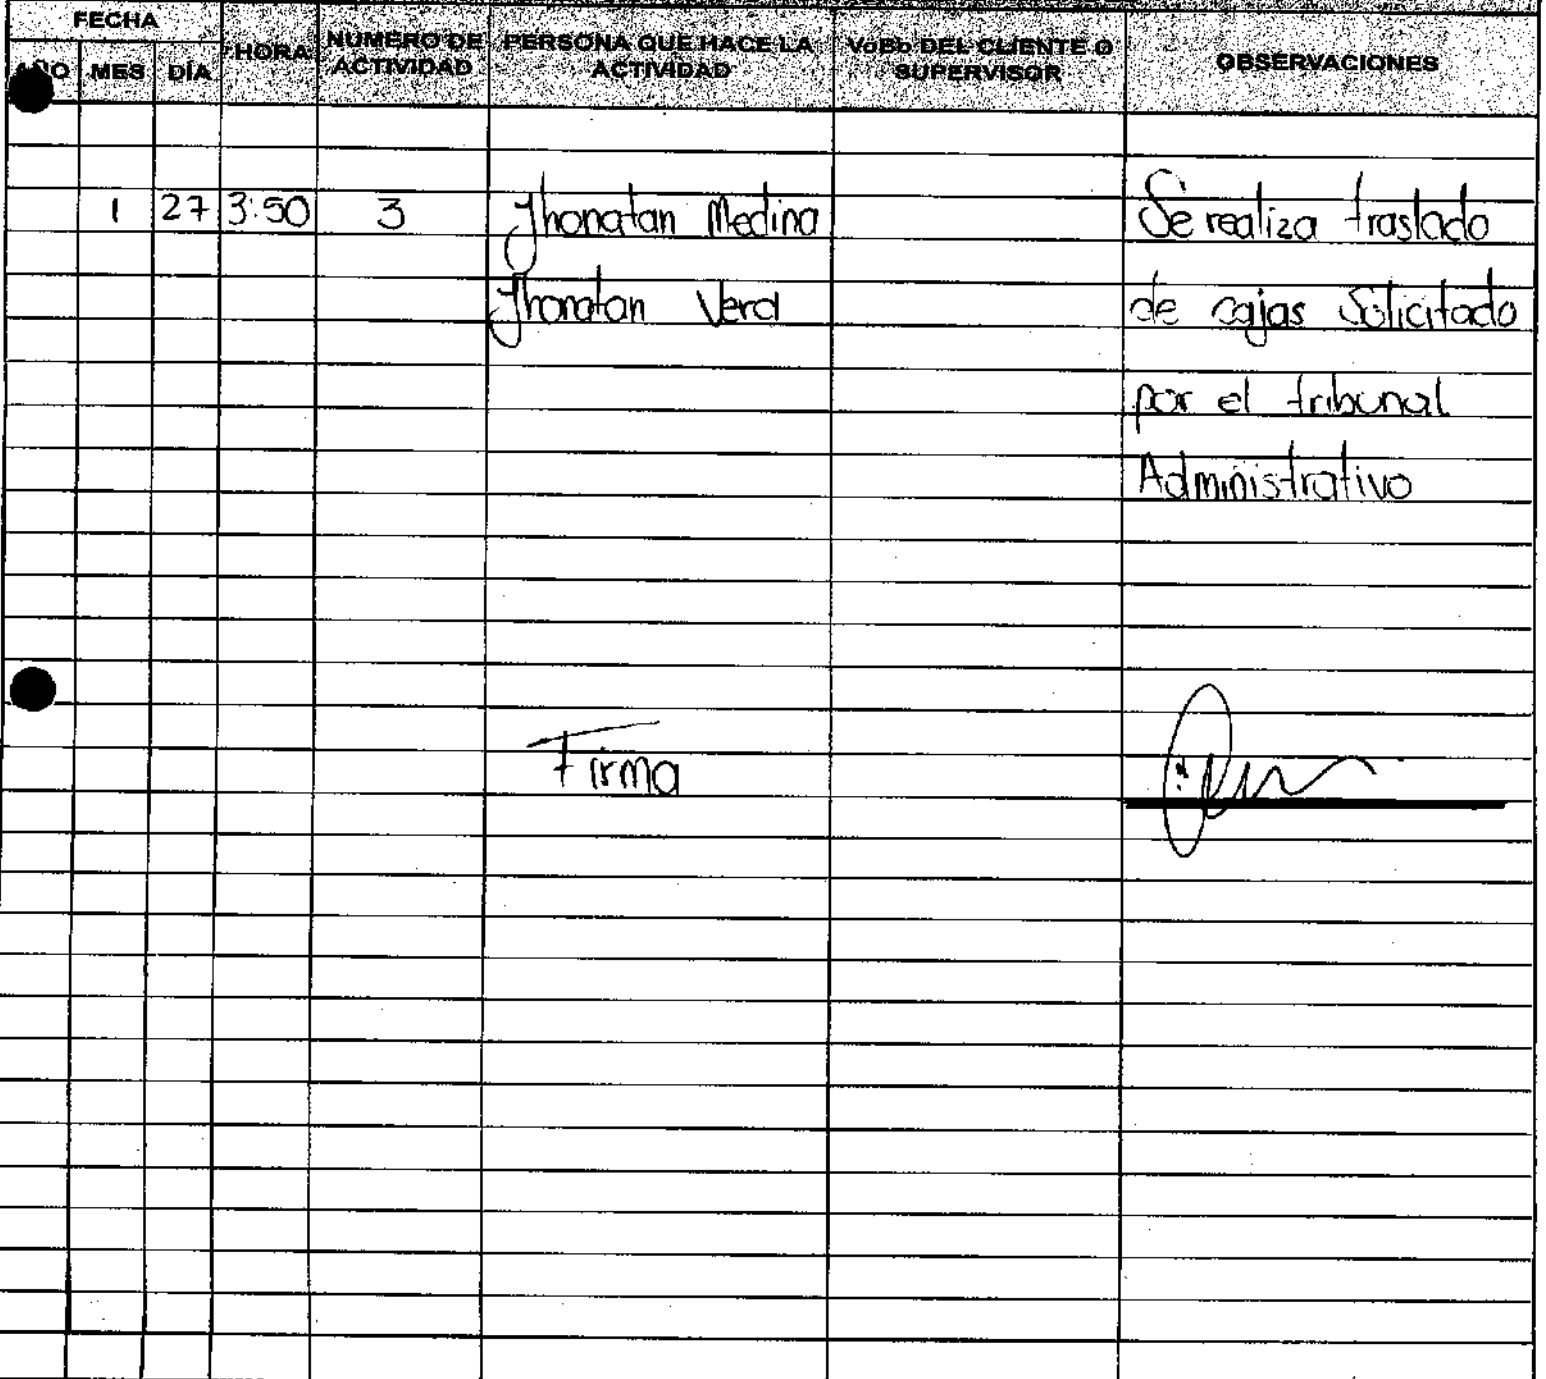 FECHA
AÑO MES DÍA HORA NUMERO DE ACTIVIDAD PERSONA QUE HACE LA ACTIVIDAD VoBo DEL CLIENTE O SUPERVISOR OBSERVACIONES
1 27 3:50 3 Jhonatan Medina Se realiza traslado
Jhonatan Vera de cajas Solicitado
por el tribunal
Administrativo
Firma